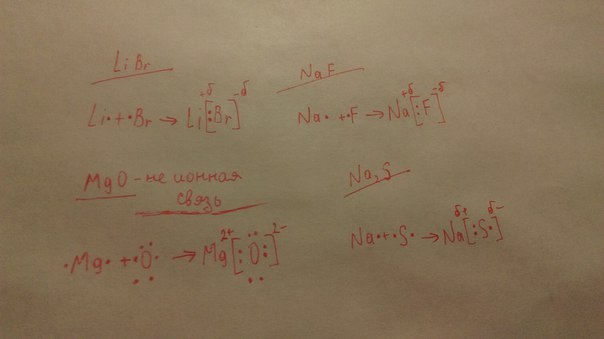 LiBr
Li• + •Br → Li⁺ᵟ[:Br]⁻ᵟ
NaF
Na• + •F → Na⁺ᵟ[:F]⁻ᵟ
MgO - не ионная
связь
•Mg• + •Ö• → Mg²⁺[:Ö:]²⁻
Na₂S
Na• + •S• → Naᵟ⁺[:S•]ᵟ⁻